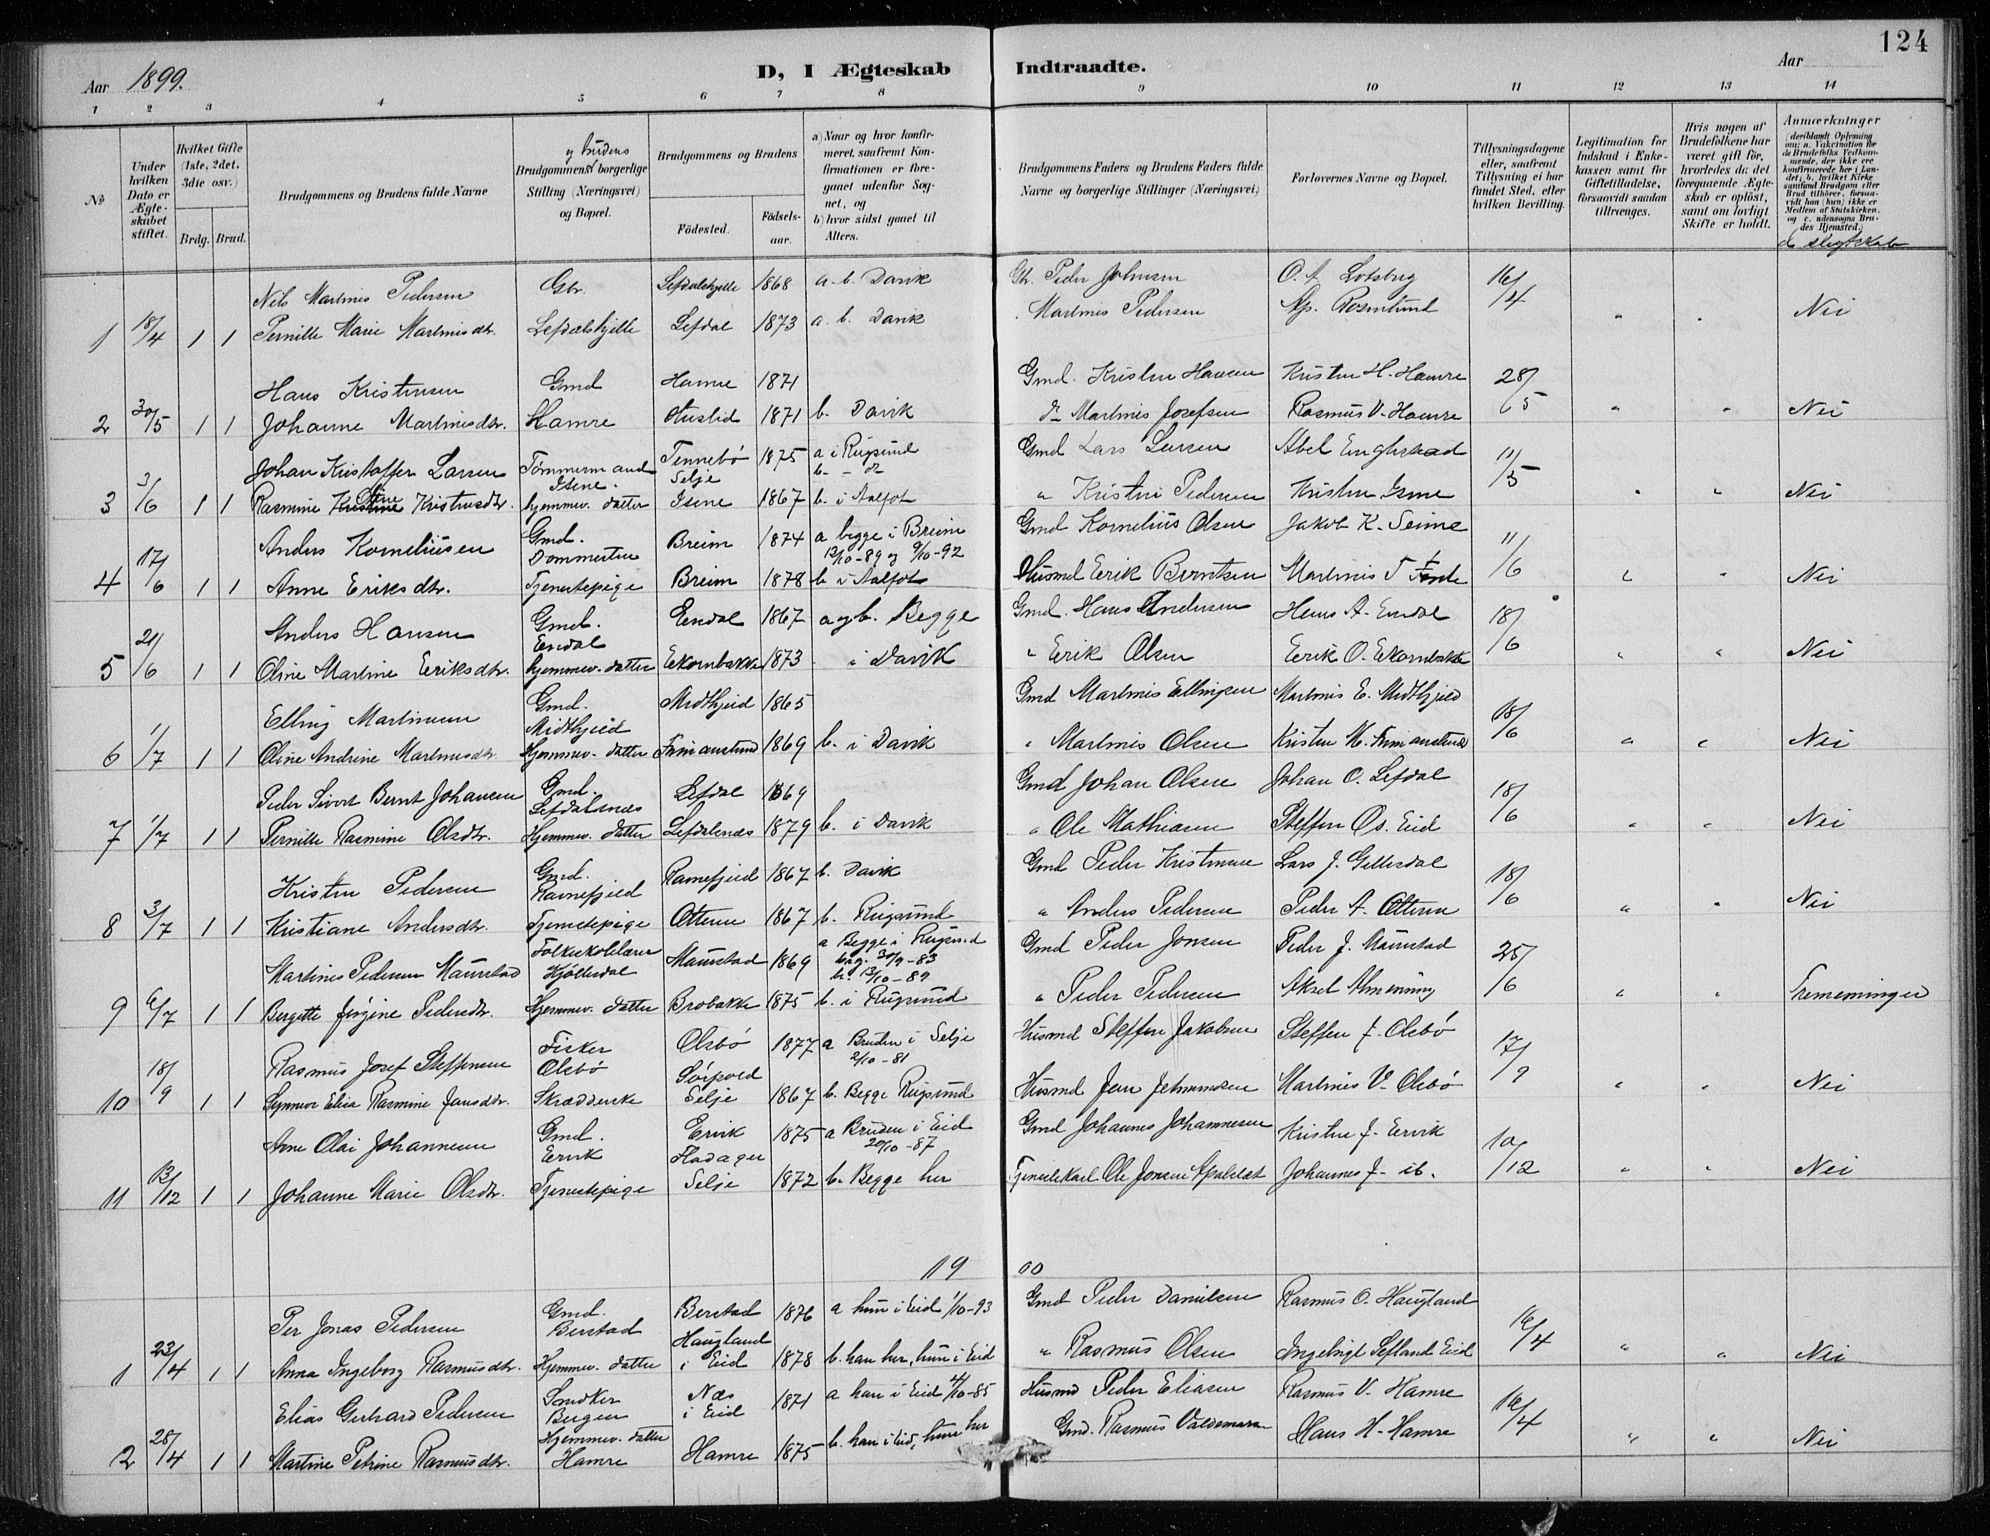 124
Aar 1899.
D, I Ægteskab Indtraadte.
Aar
1 2 3 4 5 6 7 8 9 10 11 12 13 14
No
Under hvilken Dato er Ægteskabet stiftet.
Hvilket Gifte (1ste, 2det, 3die osv.)
Brdg. Brud.
Brudgommens og Brudens fulde Navne
Brudgommens og Brudens borgerlige Stilling (Næringsvei) og Bopæl.
Brudgommens og Brudens
Födested. Födsels-aar.
a) Naar og hvor konfirmeret, saafremt Konfirmationen er foregaaet udenfor Sognet, og
b) hvor sidst gaaet til Alters.
Brudgommens Faders og Brudens Faders fulde Navne og borgerlige Stillinger (Næringsvei)
Forlovernes Navne og Bopæl.
Tillysningsdagene eller, saafremt Tillysning ei har fundet Sted, efter hvilken Bevilling.
Legitimation for Indskud i Enkekassen samt for Giftetilladelse, forsaavidt saadan tiltrænges.
Hvis nogen af Brudefolkene har været gift för, hvorledes da det foregaaende Ægteskab er oplöst, samt om lovligt Skifte er holdt.
Anmærkninger (deriblandt Oplysning om: a. Vakcination for de Brudefolks Vedkommende, der ikke ere konfirmerede her i Landet; b. hvilket Kirkesamfund Brudgom eller Brud tilhörer, forsaavidt han (hun) ikke er Medlem af Statskirken. og c. udensogns Brudes Hjemsted.)
d. slegtskab
Nils Martinus Pedersen Gbr. Lefdalshjelle 1868 a. b. Davik Gbr. Peder Johnsen O. A. Lotsberg 16/4
1 18/4 1 1 Pernille Marie Martinusdtr. Lefdalshjelle Lefdal 1873 a. b. Davik Martinus Pedersen Ap. Rosenlund Nei
Hans Kristensen Gmd Hamre 1871 Gmd. Kristen Hansen Kristen H. Hamre 28/5
2 30/5 1 1 Johanne Martinusdtr. Hamre 1871 b. Davik do Martinus Josefsen Rasmus V. Hamre Nei
Johan Kristoffer Larsen Tømmermand Isene. Tennebö Selje 1875 a i Rugsund b. - do Gmd Lars Larsen Abel 11/5
3 3/6 1 1 Rasmine Oline Kristensdtr. hjemmev. datter Isene 1867 b. i Aalfot " Kristen Pedersen Kristen Isene Nei
Anders Korneliusen Gmd. Dommersten Breim 1874 a begge i Breim 13/10-89 og 9/10-92 Gmd Kornelius Olsen Jakob K. Seime 11/6
4 17/6 1 1 Anne Eriksdtr. Tjenestepige Breim 1878 b. i Aalfot Husmd Eerik Berntsen Martinus T. Nei
Anders Hansen Gmd. Endal Endal 1867 a og b. Begge Gmd. Hans Andersen Hans A. Endal 18/6
5 21/6 1 1 Oline Martine Eeriksdtr. hjemmev. datter Eekornbakke 1873 i Davik " Eerik Olsen Eerik O. Eekornbakke Nei
Elling Martinusen Gmd. Midthjeld Midthjeld 1865 Gmd Martinus Ellingsen Martinus E. Midthjeld 18/6
6 1/7 1 1 Oline Andrine Martinusdtr. Hjemmev. datter 1869 b. i Davik " Martinus Olsen Kristen M. Nei
Peder Sivert Bernt Johansen Gmd. Lefdalsnæs Lefdal 1869 Gmd Johan Olsen Johan O. Lefdal 18/6
7 1/7 1 1 Pernille Rasmine Olsdtr. Hjemmev. datter Lefdalsnæs 1879 b. i Davik " Ole Mathiasen Steffen Os. Eid Nei
Kristen Pedersen Gmd. Ramefjeld Ramefjeld 1867 b. Davik Gmd Peder Kristensen Lars J. Gillesdal 18/6
8 3/7 1 1 Kristiane Andersdtr. Tjenestepige Otteren 1867 b. Rugsund " Anders Pedersen Peder A. Otteren Nei
Martinus Pedersen Maurstad Folkeskolelærer Hjöllesdal Maurstad 1869 a Begge i Rugsund brg. 30/9-83 br. 13/10-89 Gmd Peder Jonsen Peder J. Maurstad 25/6
9 6/7 1 1 Bergitte Jørgine Pedersdtr. Hjemmev. datter Brobakke 1875 b. i Rugsund " Peder Pedersen Aksel Almenning Tremenninger
Rasmus Josef Steffensen Fisker Olsbö Olsbö 1877 a Bruden i Selje 2/10-81 Husmd Steffen Jakobsen Steffen J. Olsbö 17/9
10 18/9 1 1 Synneve Elisa Rasmine Jensdtr. Skrædderske Sörpold Selje 1867 b. Begge Rugsund Husmd Jens Martinus V. Olsbö Nei
Arne Olai Johannesen Gmd. Ervik Ervik 1875 a Bruden i Eid 20/10-87 Gmd Johannes Johannesen Kristen J. Eervik 10/12
11 12/12 1 1 Johanne Marie Olsdtr. Tjenestepige Hadager Selje 1872 b. Begge her Tjenestekarl Ole Jonsen Apaldset Johannes J. ib. Nei
19 00
Per Jonas Pedersen Gmd. Berstad Berstad 1876 a hun i Eid 1/10-93 Gmd Peder Danielsen Rasmus O. Haugland 16/4
1 23/4 1 1 Anna Ingeborg Rasmusdtr. Hjemmev. datter Haugland i Eid 1878 b. han her, hun i Eid " Rasmus Olsen Ingebrigt Sefland Eid Nei
Elias Gerhard Pedersen Snedker Bergen Næs i Eid 1871 a han i Eid 4/10-85 Husmd Peder Eliasen Rasmus V. Hamre 16/4
2 28/4 1 1 Martine Petrine Rasmusdtr. Hjemmev. datter Hamre Hamre 1875 b. han i Eid, hun her Gmd. Rasmus Valdemarsen Hans H. Hamre Nei